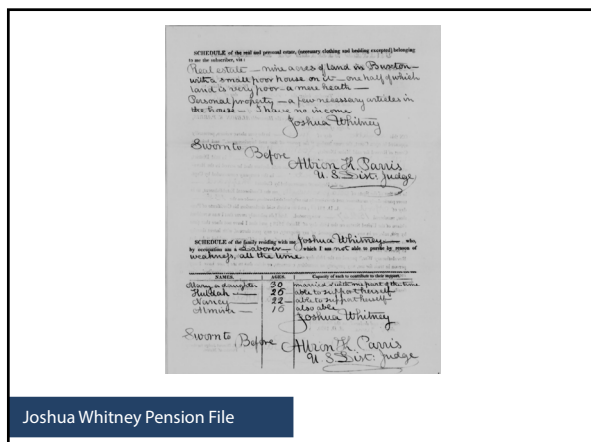 SCHEDULE of the real and personal estate, (necessary clothing and bedding excepted) belonging
to me the subscriber, viz:
Real estate — nine acres of land in Buxton —
with a small poor house on it — one half of which
land is very poor — a mere heath —
Personal property — a few necessary articles in
the house — I have no income
Joshua Whitney
Sworn to Before Albion K. Parris
U. S. Dist. Judge
SCHEDULE of the family residing with me Joshua Whitney — who,
by occupation am a Laborer — which I am not able to pursue by reason of
weakness, all the time
NAMES. AGES. Capacity of each to contribute to their support.
Mary a daughter 30 married & with me part of the time
Huldah — 26 able to support herself
Nancy — 22 — able to support herself
Almira — 16 also able
Joshua Whitney
Sworn to Before Albion K. Parris
U. S. Dist. Judge
Joshua Whitney Pension File